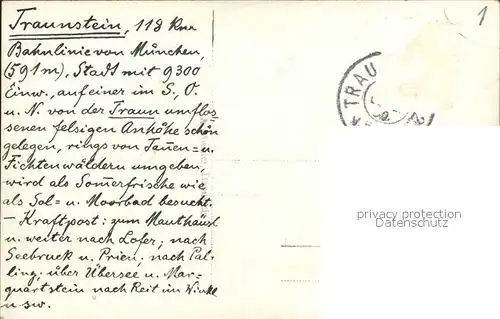 Traunstein, 118 Km
Bahnlinie von München,
(591 m), Stadt mit 9300
Einw., auf einer im S, O.
u. N. von der Traun umflos
senen felsigen Anhöhe schön
gelegen, rings von Tan̄en= u.
Fichtenwäldern umgeben,
wird als Som̄erfrische wie
als Sol= u. Moorbad besucht.
— Kraftpost: zum Mauthäusl
u. weiter nach Lofer; nach
Seebruck u. Prien; nach Pal=
ling; über Übersee u. Mar=
quartstein nach Reit im Winkl
usw.
1
TRAU
privacy protection
Datenschutz